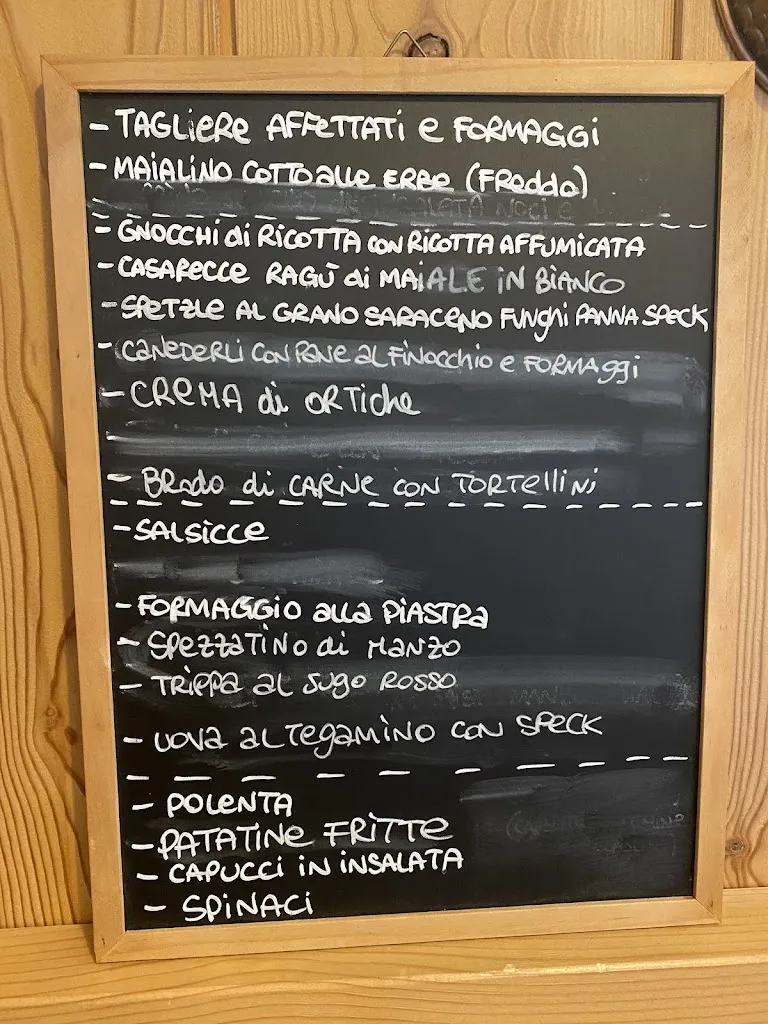 - TAGLIERE AFFETTATI e FORMAGGI
- MAIALINO COTTO alle ERBE (FReddo)
- GNOCCHI di RICOTTA con RICOTTA AFFUMICATA
- CASARECCE RAGÙ di MAIALE IN BIANCO
- SPETZLE AL GRANO SARACENO FUNghi PANNA SPECK
- CANEDERLI CON PANE AL FINOCCHIO e FORMAggi
- CREMA di ORTiche
- BRodo di CARNE CON TORTellini
- SALSICCE
- FORMAGGIO alla PIASTRA
- SPEZZATINO di MANZO
- TRIPPA al SUGO ROSSO
- UOVA AL TEGAMINO CON SPECK
- POLENTA
- PATATINE FRITTE
- CAPUCCI IN INSALATA
- SPINACI